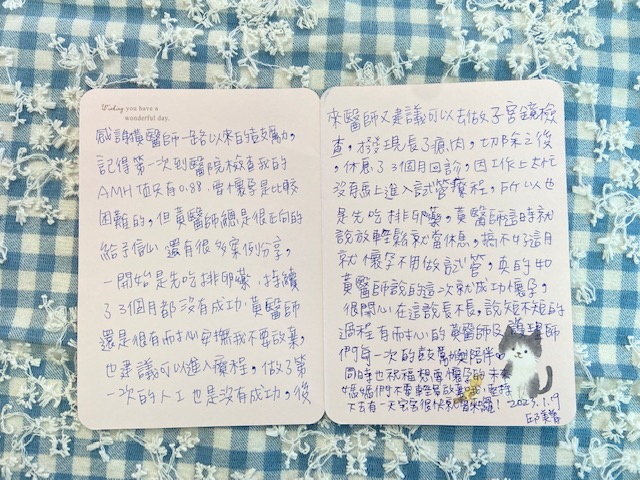 Wishing you have a
wonderful day.
感謝黃醫師一路以來的鼓勵，
記得第一次到醫院檢查我的
AMH值只有0.88，要懷孕是比較
困難的，但黃醫師總是很正向的
給予信心還有很多案例分享，
一開始是先吃排卵藥，持續
了3個月都沒有成功，黃醫師
還是很有耐心安撫我不要放棄，
也建議可以進入療程，做了第
一次的人工也是沒有成功，後
來醫師又建議可以去做子宮鏡檢
查，發現長了瘜肉，切除之後
，休息了3個月回診，因工作上太忙
沒有馬上進入試管療程，所以也
是先吃排卵藥，黃醫師這時就
說放輕鬆就當休息，搞不好這月
就懷孕不用做試管，真的如
黃醫師說的這一次就成功懷孕，
很開心在這說長不長，說短不短的
過程有耐心的黃醫師及護理師
們每一次的鼓勵和陪伴
同時也祝福想要懷孕的未來
媽媽們不要輕易放棄 堅持
下去有一天寶寶很快就會來囉！2023.1.9
邱